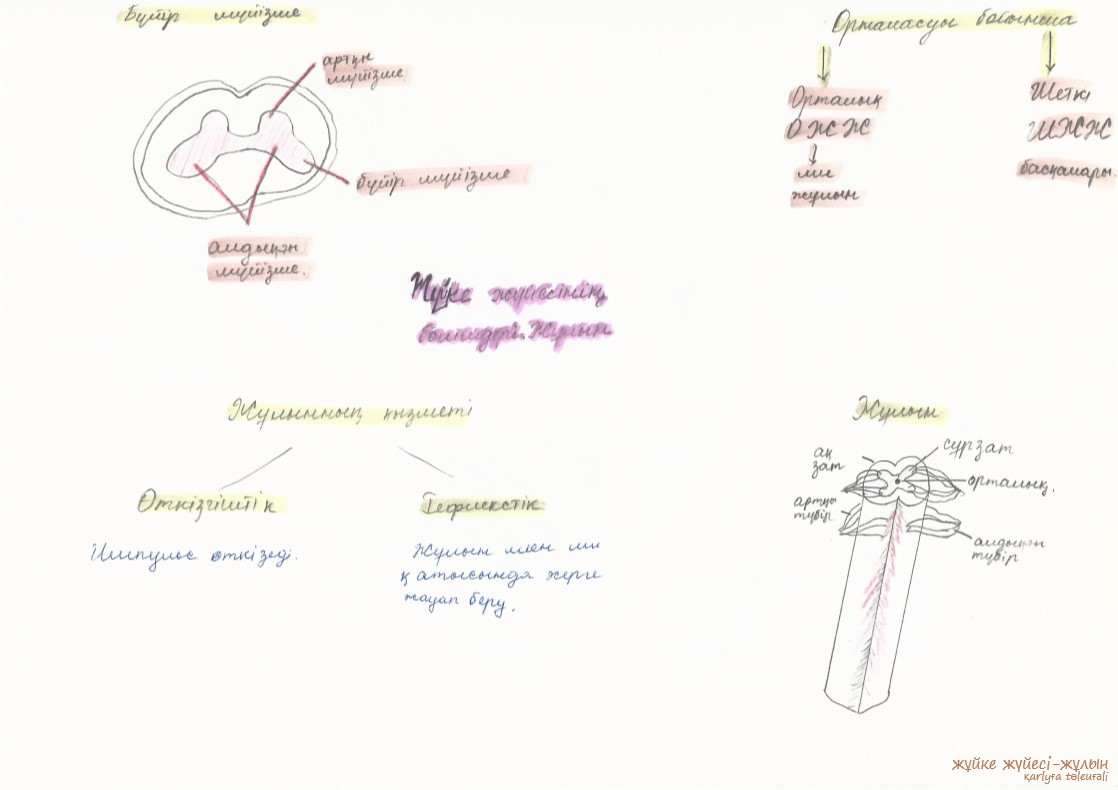 Бүйір мүйізше
артқы
мүйізше
бүйір мүйізше
алдыңғы
мүйізше.
Орналасуы бойынша
Орталық
ОЖЖ
ми
жұлын
Шеткі
ШЖЖ
басқалары.
Жүйке жүйесінің
бөлімдері. Жұлын
Жұлынның қызметі
Өткізгіштік
Импульс өткізеді.
Рефлекстік
Жұлын мен ми
қатысында
жауап беру.
Жұлын
ақ
зат
сұр зат
орталық
артқы
түбір
алдыңғы
түбір
жүйке жүйесі-жұлын
қарлыға төлеуғали